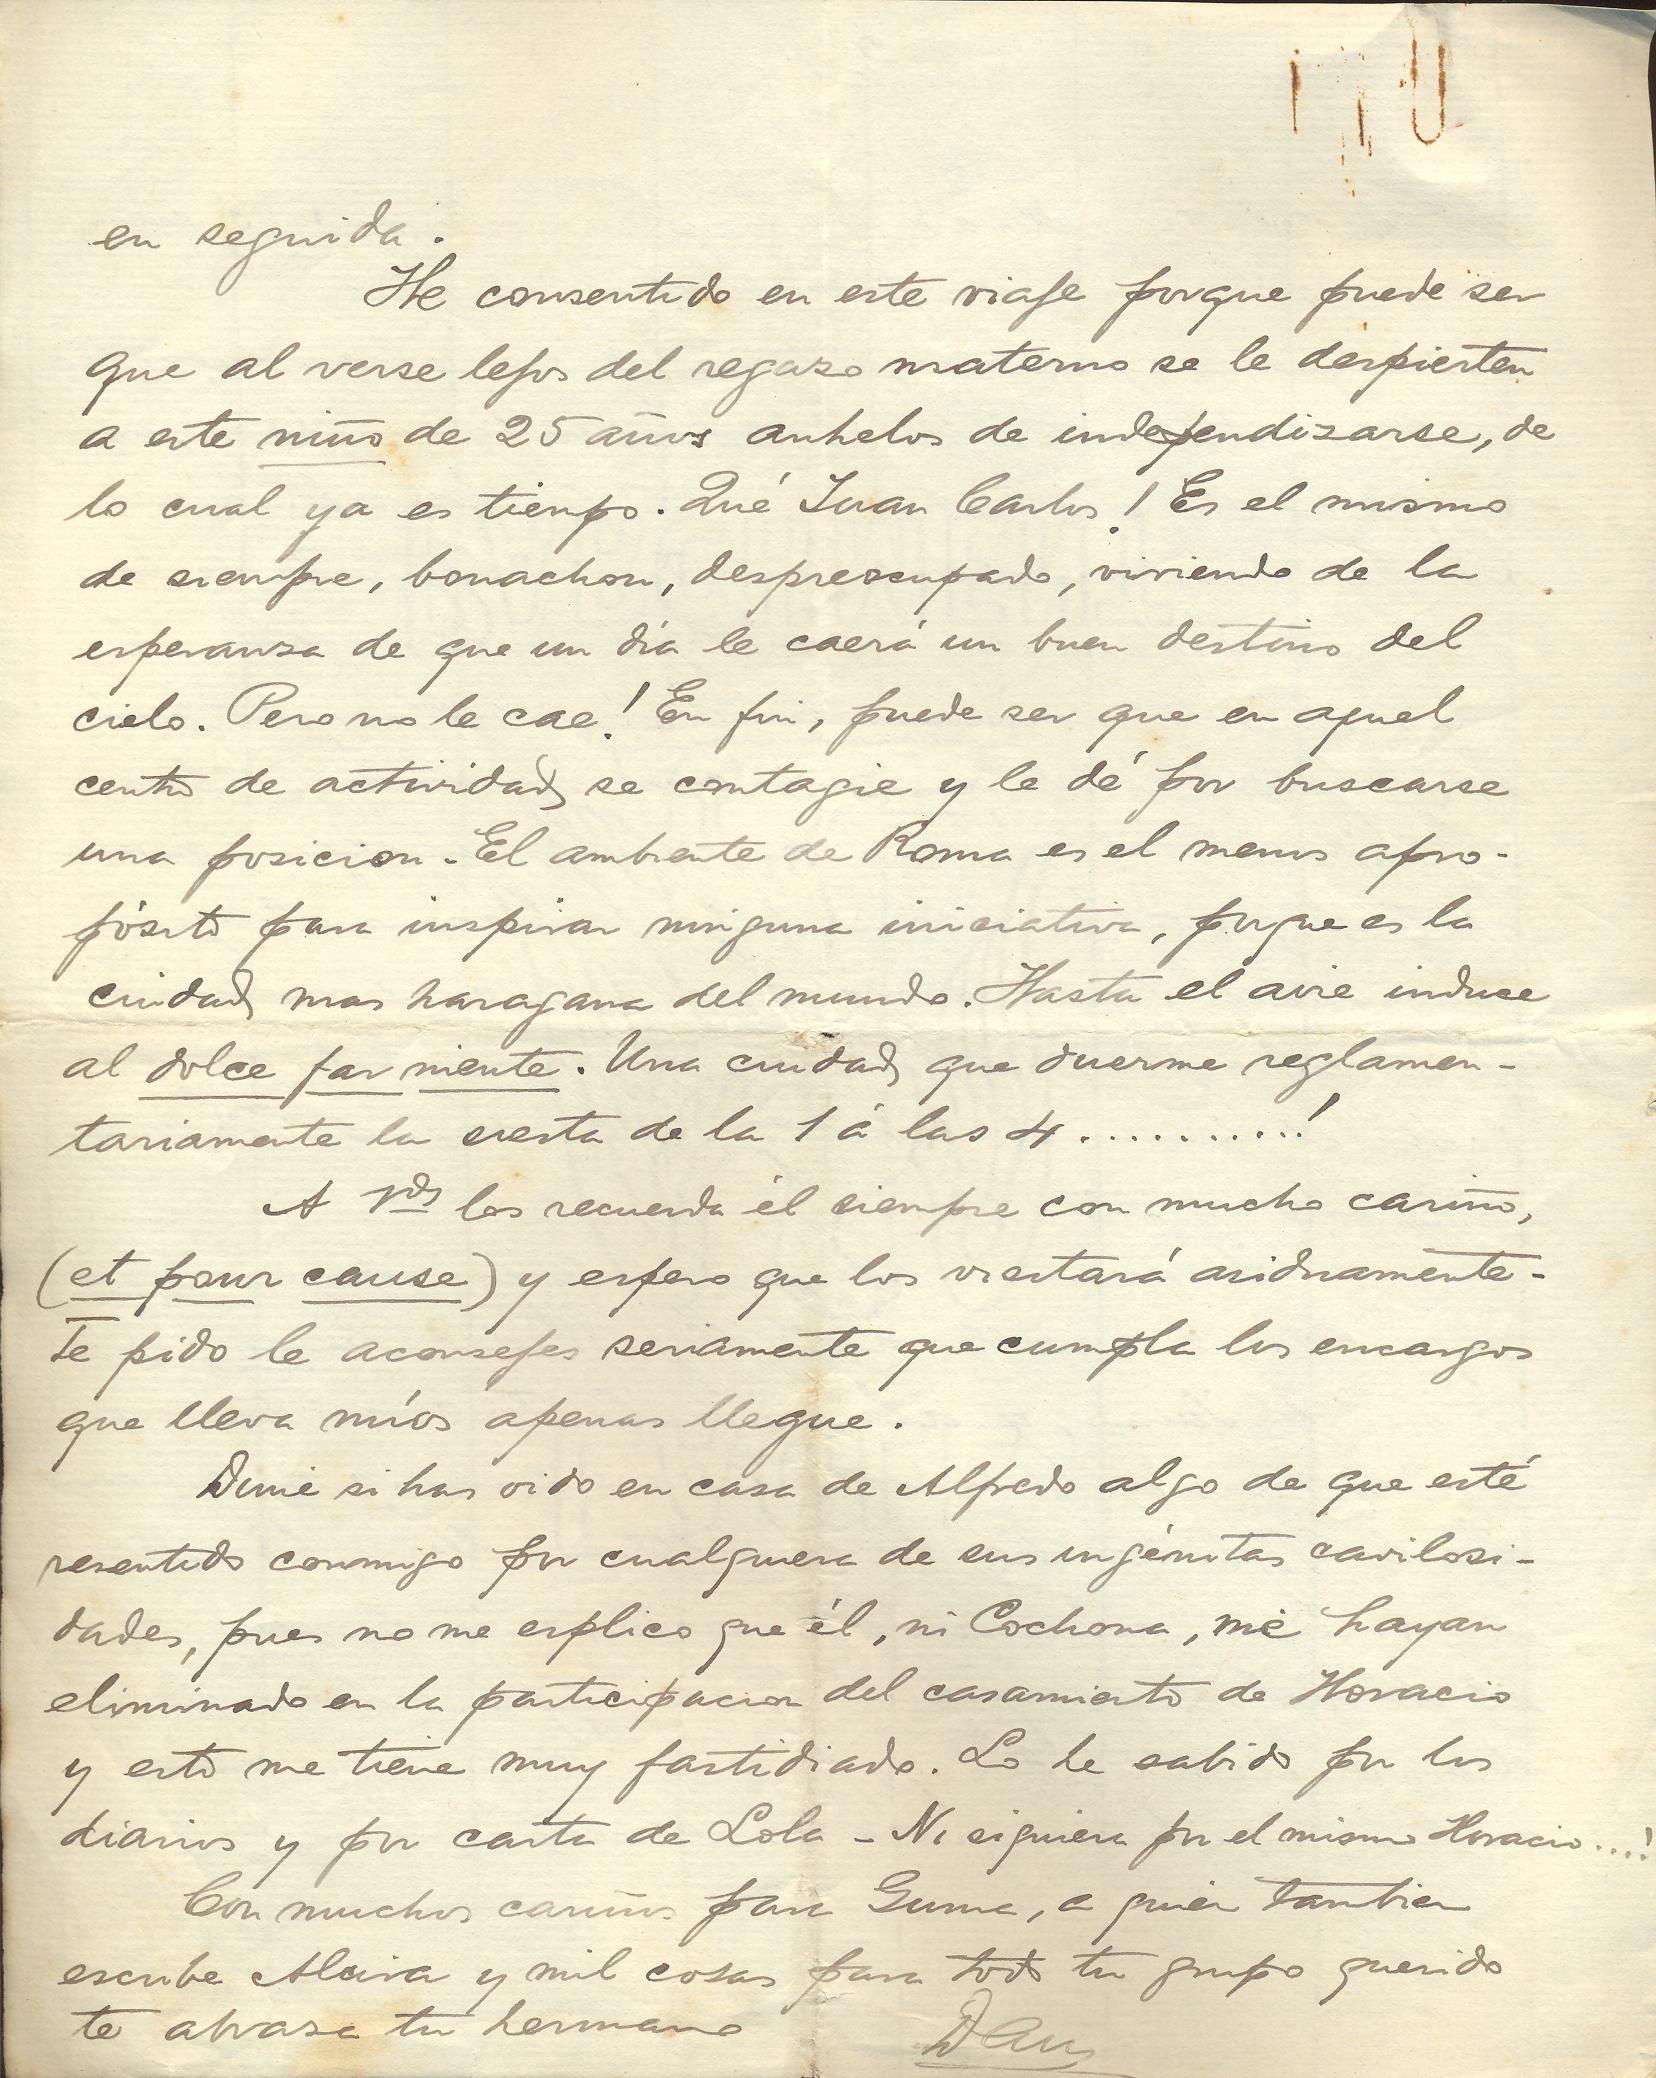 en seguida.
He consentido en este viaje porque puede ser
que al verse lejos del regazo materno se le despierten
a este niño de 25 años anhelos de independizarse, de
lo cual ya es tiempo. Qué Juan Carlos! Es el mismo
de siempre, bonachon, despreocupado, viviendo de la
esperanza de que un día le caerá un buen destino del
cielo. Pero no le cae! En fin, puede ser que en aquel
centro de actividad se contagie y le dé por buscarse
una posicion. El ambiente de Roma es el menos apro-
pósito para inspirar ninguna iniciativa, porque es la
ciudad mas haragana del mundo. Hasta el aire induce
al dolce far niente. Una ciudad que duerme reglamen-
tariamente la siesta de la 1 á las 4 ...........!
A Vds los recuerda él siempre con mucho cariño,
(et pour cause) y espero que los visitará asiduamente-
Te pido le aconsejes seriamente que cumpla los encargos
que lleva míos apenas llegue.
Dime si has oido en casa de Alfredo algo de que esté
resentido conmigo por cualquiera de sus ingénitas cavilosi-
dades, pues no me esplico que él, ni Cochona, me hayan
eliminado en la participacion del casamiento de Horacio
y esto me tiene muy fastidiado. Lo he sabido por los
diarios y por carta de Lola - Ni siquiera por el mismo Horacio....!
Con muchos cariños para Guma, a quien tambien
escribe Alcira y mil cosas para todo tu grupo querido
te abraza tu hermano